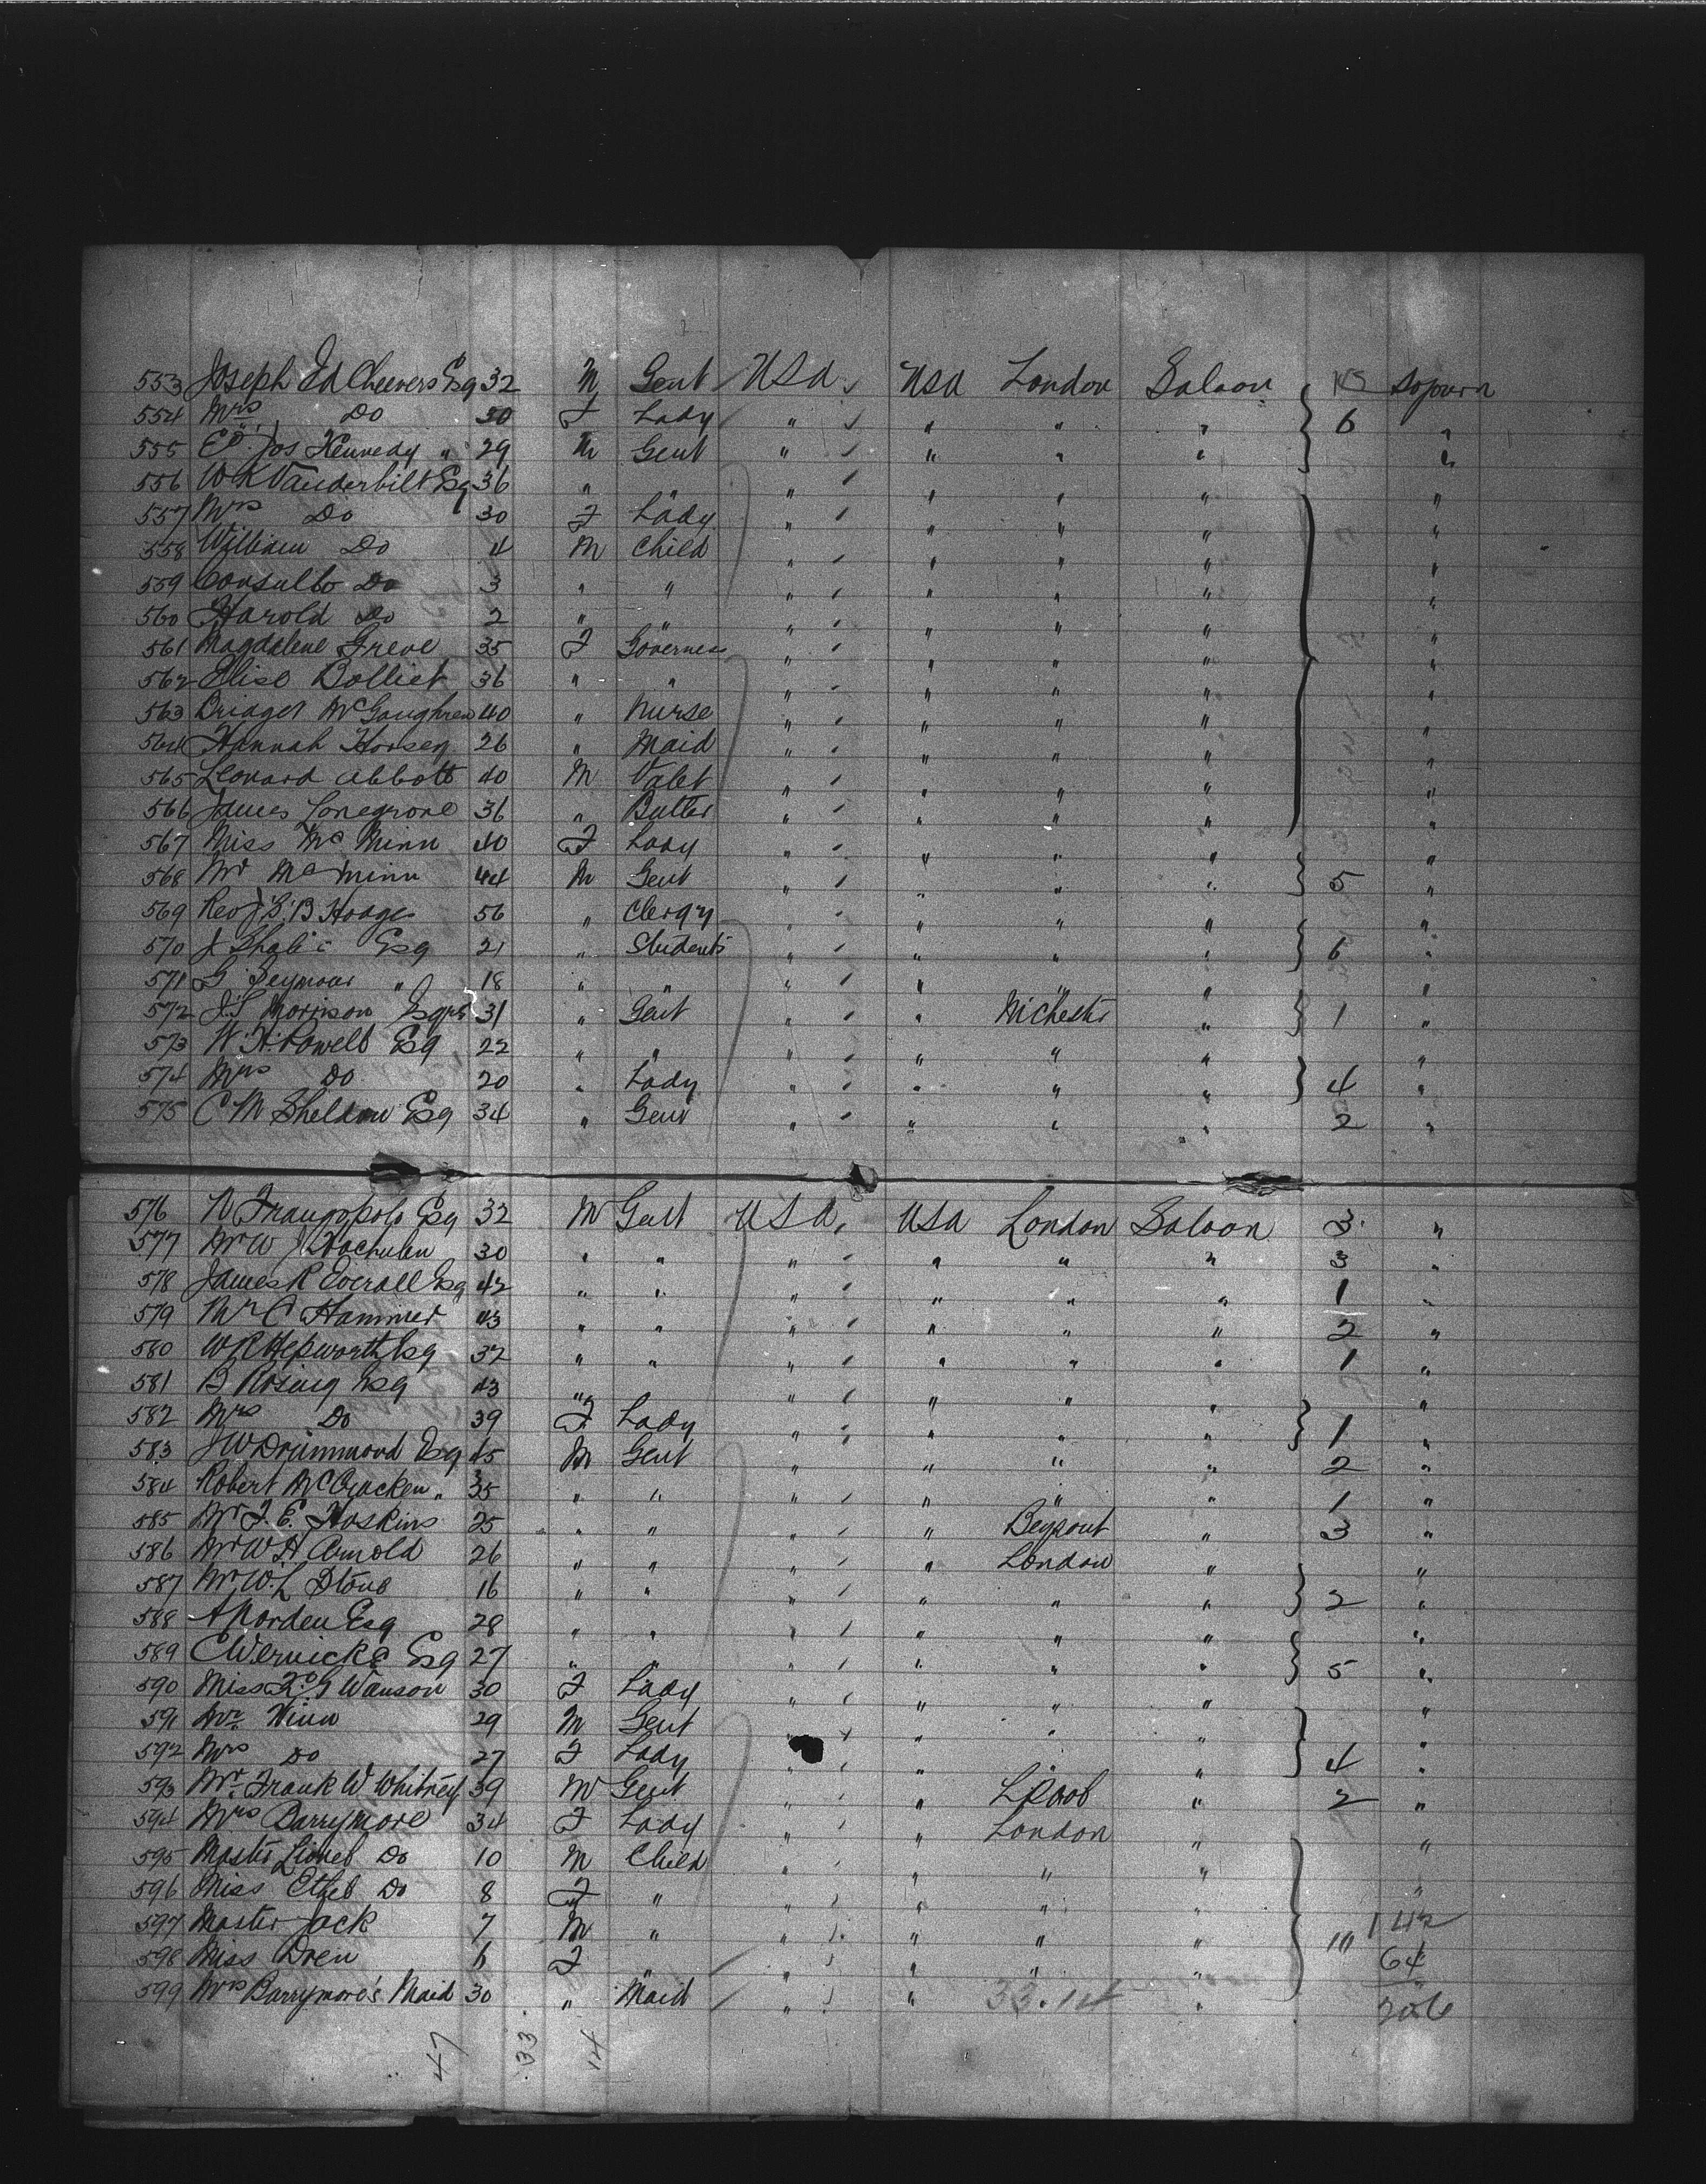 553 Joseph Ed Cheevers Esq 32 M Gent USA USA London Saloon Sojourn
554 Mrs Do 30 F Lady " " " " 6 "
555 Ed Jos Kennedy " 29 M Gent " " " " "
556 W K Vanderbilt Esq 36 " " " " " " "
557 Mrs Do 30 F Lady " " " " "
558 William Do 4 M Child " " " " "
559 Consuello Do 3 " " " " " " "
560 Harold Do 2 " " " " " " "
561 Magdalene Greve 35 F Governess " " " " "
562 Elise Bolliet 36 " " " " " " "
563 McGaughren 40 " Nurse " " " " "
564 Hannah 26 " Maid " " " " "
565 Leonard Abbott 40 M Valet " " " " "
566 James Lonegrove 36 " Butler " " " " "
567 Miss McMinn 40 F Lady " " " " "
568 Mr McMinn 44 M Gent " " " " 5 "
569 Rev J. S. B Hodges 56 " Clergy " " " " "
570 J Esq 21 " Students " " " " 6 "
571 G Seymour " 18 " " " " " " "
572 J. S Morrison Esqre 31 " Gent " " MChester " 1 "
573 W. H. Powell Esq 22 " " " " " " "
574 Mrs Do 20 " Lady " " " " 4 "
575 C M Sheldon Esq 34 " Gent " " " " 2 "
576 N Esq 32 M Gent USA USA London Saloon 3 "
577 Mr W J 30 " " " " " " 3 "
578 James R Everall Esq 42 " " " " " " 1 "
579 Mr C Hammer 43 " " " " " " 2 "
580 W R Hepworth Esq 32 " " " " " " 1 "
581 B Rosing Esq 43 " " " " " " "
582 Mrs Do 39 F Lady " " " " 1 "
583 J W Drummond Esq 45 M Gent " " " " 2 "
584 Robert McCracken " 35 " " " " " " 1 "
585 Mr F. E. Hoskins 25 " " " " Beyrout " 3 "
586 Mr W H Arnold 26 " " " " London " "
587 Mr W. L Stone 16 " " " " " " 2 "
588 A Norden Esq 28 " " " " " " "
589 C Wernicke Esq 27 " " " " " " 5 "
590 Miss F. G Wanson 30 F Lady " " " " "
591 Mr Winn 29 M Gent " " " " "
592 Mrs Do 27 F Lady " " " " 4 "
593 Mr Frank W Whitney 39 M Gent " " LPool " 2 "
594 Mrs Barrymore 34 F Lady " " London " "
595 Master Lionel Do 10 M Child " " " " "
596 Miss Ethel Do 8 F " " " " " "
597 Master Jack 7 M " " " " " 142
598 Miss Drew 6 F " " " " " 64
599 Mrs Barrymore's Maid 30 " Maid " " 33.14 " 206
47 33 14